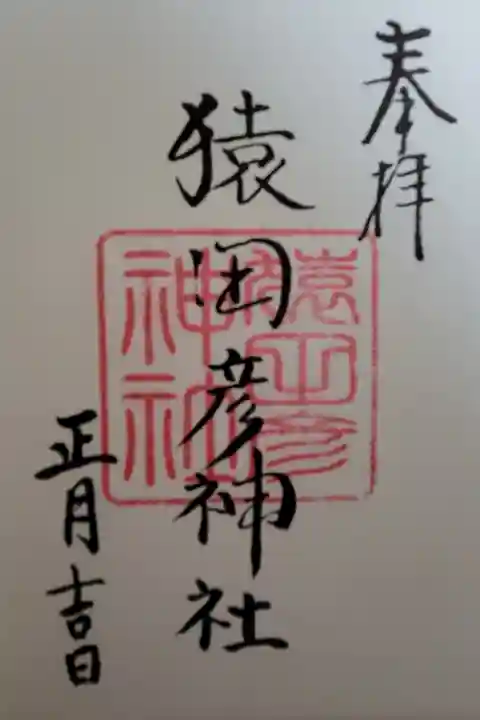 奉拝
猿田彦神社
猿田彦
神社
正月吉日